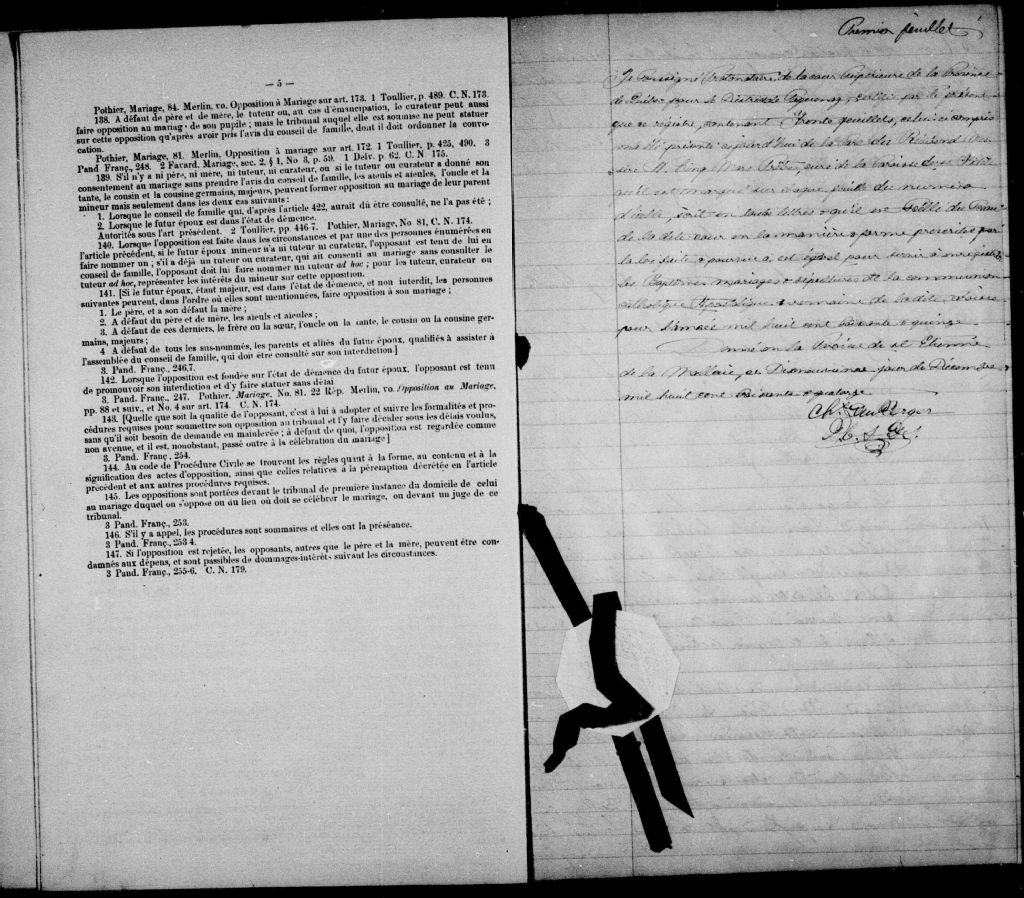 — 5 —
Pothier, Mariage, 84. Merlin, vo. Opposition à Mariage sur art. 173. 1 Toullier, p. 489. C. N. 173.
138. A défaut de père et de mère, le tuteur ou, au cas d'émancipation, le curateur peut aussi
faire opposition au mariage de son pupile ; mais le tribunal auquel elle est soumise ne peut statuer
sur cette opposition qu'après avoir pris l'avis du conseil de famille, dont il doit ordonner la convo-
cation.
Pothier, Mariage, 81. Merlin, Opposition à mariage sur art. 172. 1 Toullier, p. 425, 490. 3
Pand Franç., 248. 2 Favard. Mariage, sec. 2, § 1, No 3, p. 59. 1 Delv. p. 62. C. N 175.
139. S'il n'y a ni père, ni mère, ni tuteur, ni curateur, ou si le tuteur ou curateur a donné son
consentement au mariage sans prendre l'avis du conseil de famille, les aïeuls et aïeules, l'oncle et la
tante, le cousin et la cousine germains, majeurs, peuvent former opposition au mariage de leur parent
mineur mais seulement dans les deux cas suivants :
1. Lorsque le conseil de famille qui, d'après l'article 422, aurait dû être consulté, ne l'a pas été ;
2. Lorsque le futur époux est dans l'état de démence.
Autorités sous l'art présédent. 2 Toullier, pp. 446-7. Pothier, Mariage, No 81, C. N. 174.
140. Lorsque l'opposition est faite dans les circonstances et par une des personnes énumérées en
l'article précédent, si le futur époux mineur n'a ni tuteur ni curateur, l'opposant est tenu de lui en
faire nommer un ; s'il a déjà un tuteur ou curateur, qui ait consenti au mariage sans consulter le
conseil de famille, l'opposant doit lui faire nommer un tuteur ad hoc ; pour les tuteur, curateur ou
tuteur ad hoc, représenter les intérêts du mineur sur cette opposition.
141. [Si le futur époux, étant majeur, est dans l'état de démence, et non interdit, les personnes
suivantes peuvent, dans l'ordre où elles sont mentionnées, faire opposition à son mariage ;
1. Le père, et a son défaut la mère ;
2. A défaut du père et de mère, les aïeuls et aïeules ;
3. A défaut de ces derniers, le frère ou la sœur, l'oncle ou la tante, le cousin ou la cousine ger-
mains, majeurs ;
4 A défaut de tous les sus-nommés, les parents et alliés du futur époux, qualifiés à assister à
l'assemblée du conseil de famille, qui doit être consulté sur son interdiction.]
3. Pand. Franç., 246,7.
142. Lorsque l'opposition est fondée sur l'état de démence du futur époux, l'opposant est tenu
de promouvoir son interdiction et d'y faire statuer sans délai
3. Pand. Franç., 247. Pothier, Mariage, No. 81. 22 Rép. Merlin, vo. Opposition au Mariage,
pp. 88 et suiv., et No. 4 sur art. 174. C. N. 174.
143. [Quelle que soit la qualité de l'opposant, c'est à lui à adopter et suivre les formalités et pro-
cédures requises pour soumettre son opposition au tribunal et l'y faire décéler sous les délais voulus,
sans qu'il soit besoin de demande en mainlevée ; à défaut de quoi, l'opposition est regardée comme
non avenue, et il est, nonobstant, passé outre à la célébration du mariage]
3. Pand. Franç., 254.
144. Au code de Procédure Civile se trouvent les règles quant à la forme, au contenu et à la
signification des actes d'opposition, ainsi que celles relatives à la péremption décrétée en l'article
précédent et aux autres procédures requises.
145. Les oppositions sont portées devant le tribunal de première instance du domicile de celui
au mariage duquel on s'oppose ou du lieu où doit se célébrer le mariage, ou devant un juge de ce
tribunal.
3 Pand. Franç., 253.
146. S'il y a appel, les procédures sont sommaires et elles ont la préséance.
3 Pand. Franç., 253 4.
147. Si l'opposition est rejetée, les opposants, autres que le père et la mère, peuvent être con-
damnés aux dépens, et sont passibles de dommages-intérêts suivant les circonstances.
3 Pand. Franç., 255-6. C. N. 179.
Premier feuillet
Je soussigné Protonotaire de la cour Supérieure de la Province
de Québec pour le District de Saguenay, certifie par le présent
que ce registre, contenant Trente feuillets, celui-ci compris
a été présenté aujourd'hui de la part du Révérend Mes
sire
qu'il est marqué sur chaque feuillet du numéro
d'icelle, écrit en toutes lettres & qu'il est scellé du sceau
de la dite cour en la manière & forme prescrites par
la loi
les Baptêmes mariages & sépultures de la communion
catholique Apostolique & romaine de la dite Paroisse
pour l'année mil huit cent soixante & quinze.
Donné en la Paroisse de St Etienne
de la Malbaie, ce Dixneuvième jour de Décembre
mil huit cent soixante & quatorze
P. C. S. D. S.